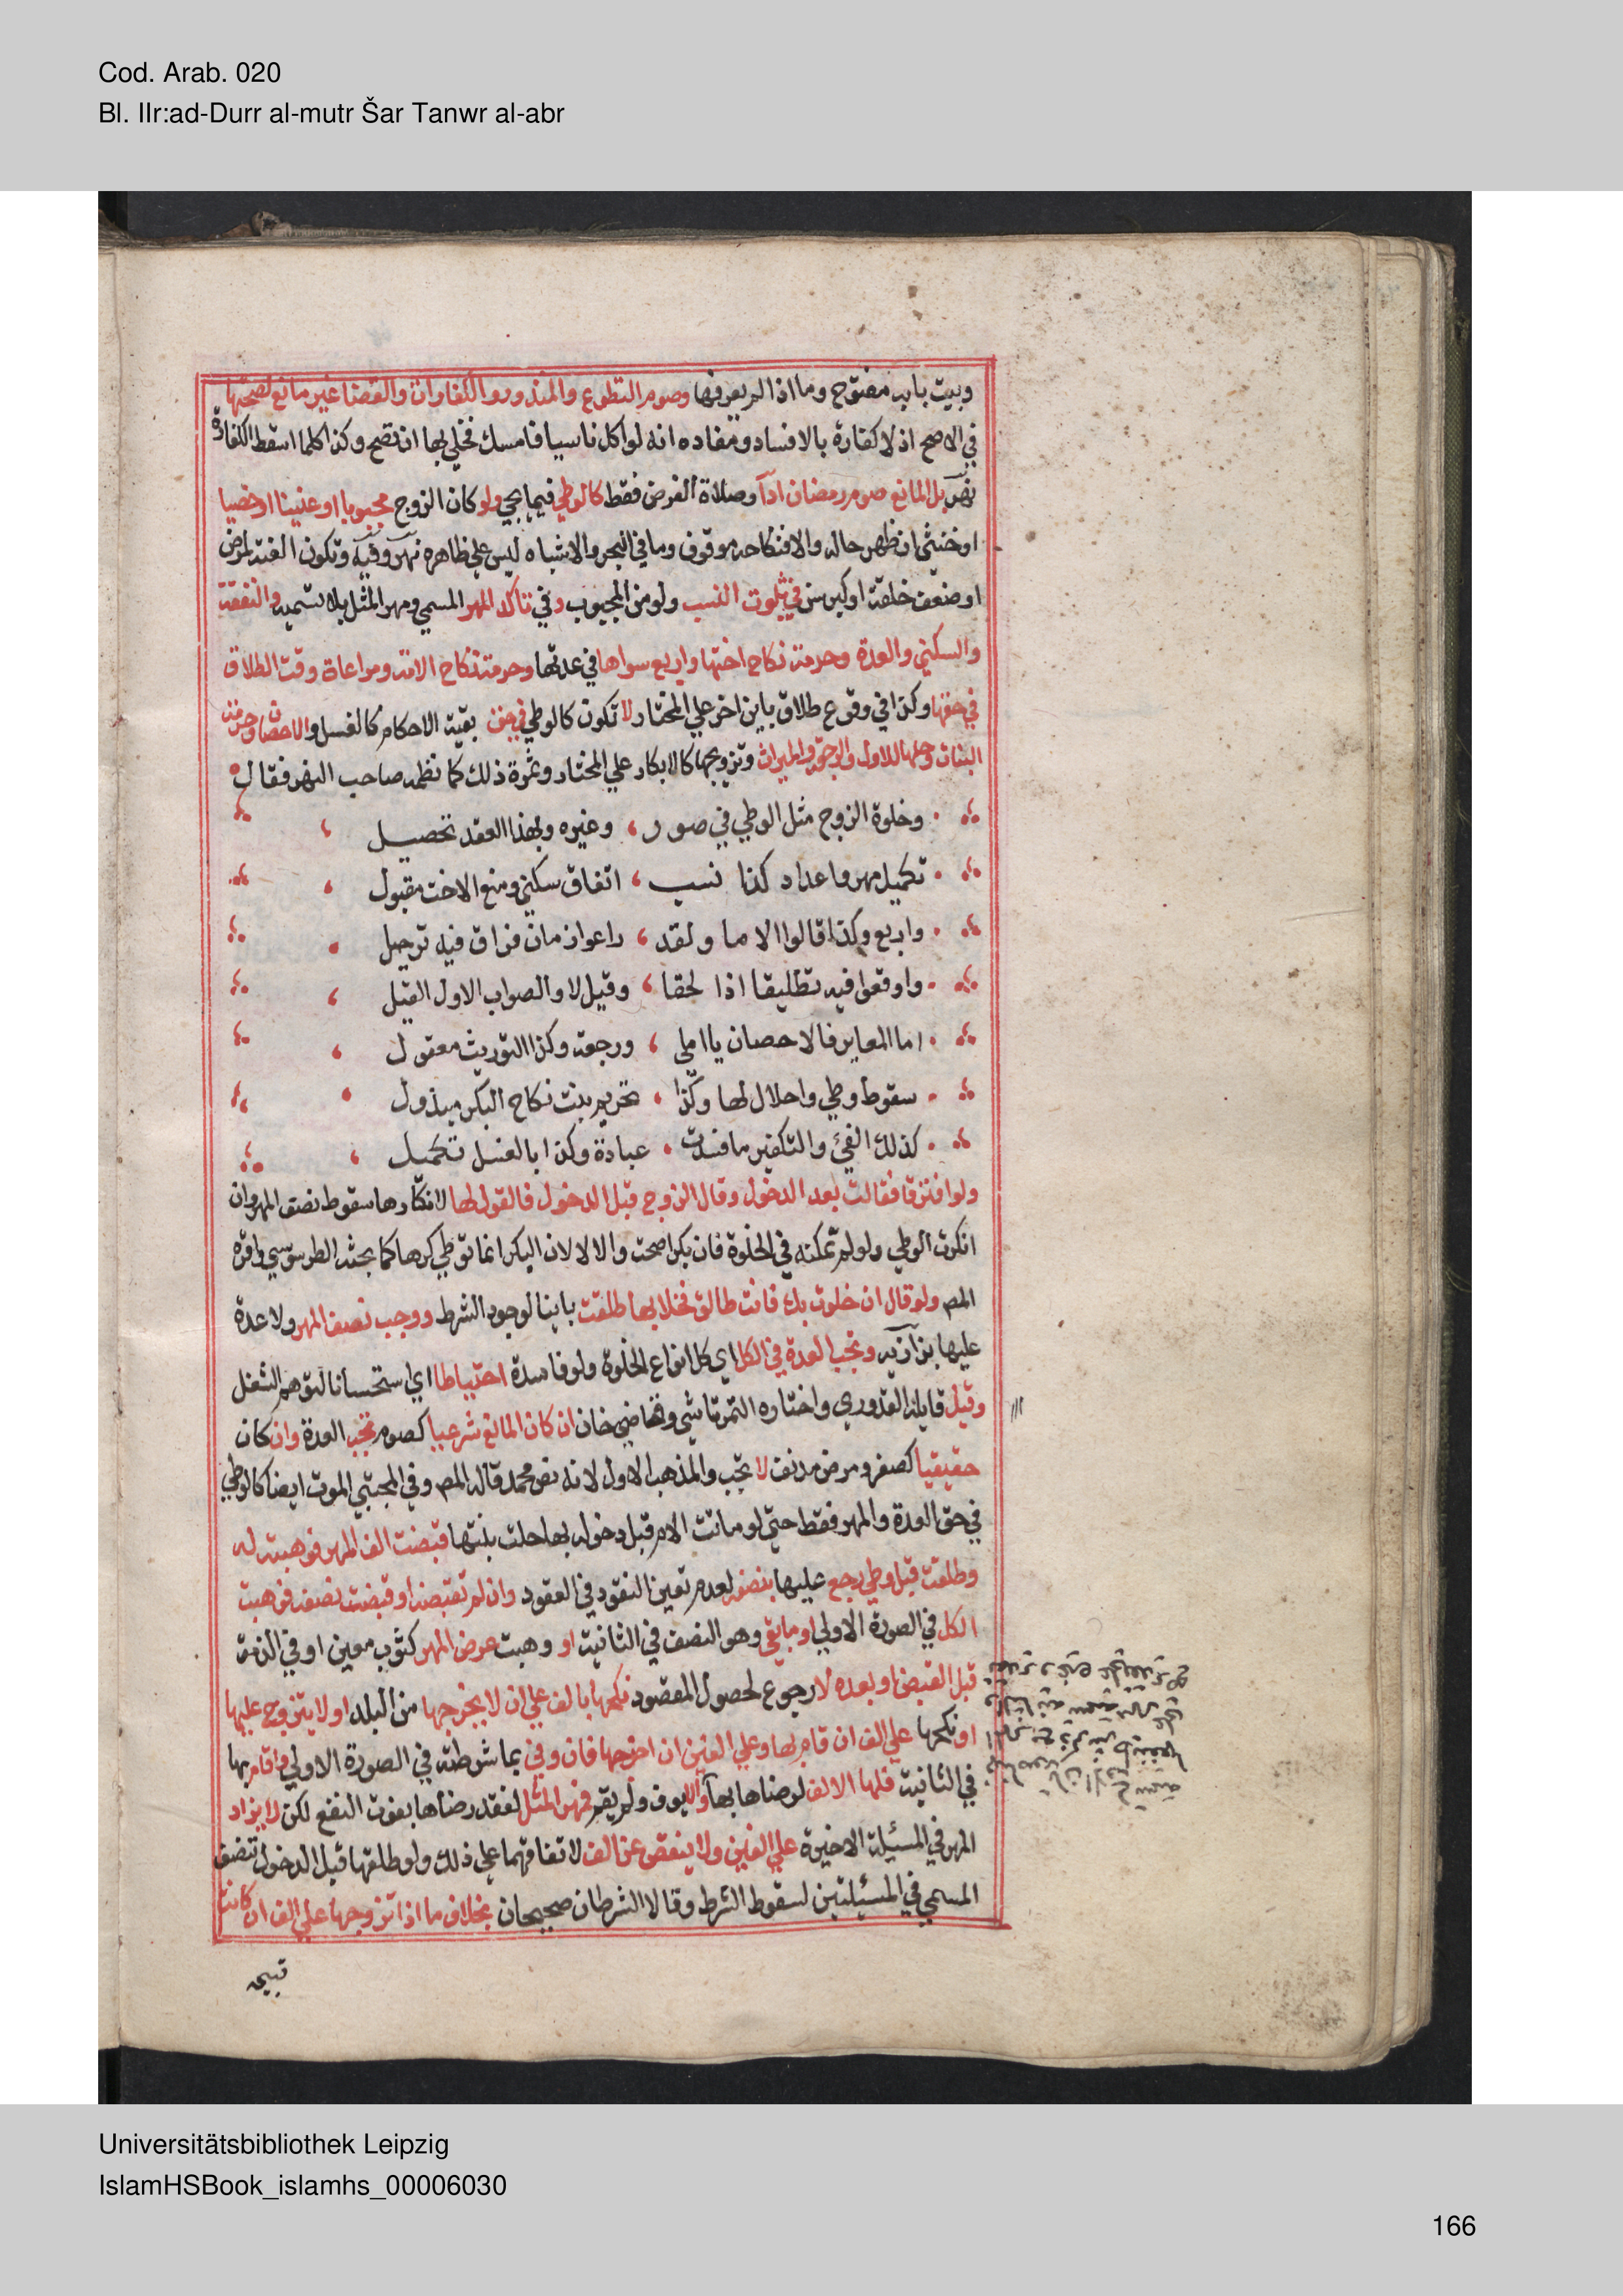 Cod. Arab. 020
Bl. IIr:ad-Durr al-mutr Šar Tanwr al-abr
وبيت بابه مفتوح وما اذا لم يعرفها وصوم التطوع والمنذور والكفارات والقضا غير مانع لصحتها
في الاصح اذ لا كفارة بالافساد ومفاده انه لو اكل ناسيا فامسك فخلي بها ان تصح وكذا كلما اسقط الكفارة
نهر بل المانع صوم رمضان ادآ وصلاة الفرض فقط كالوطي فيما يجي ولو كان الزوج مجبوبا او عنينا او خصيا
او خنثي ان ظهر حاله والا فنكاحه موقوف وما في البحر والاشباه ليس علي ظاهره نهر وفيه وتكون العنة لمرض
او ضعف خلقة او كبر سن في ثبوت النسب ولو من المجبوب وفي تاكد المهر المسمي ومهر المثل بلا تسمية والنفقة
والسكني والعدة وحرمة نكاح اختها واربع سواها في عدتها وحرمة نكاح الامة ومراعاة وقت الطلاق
في حقها وكذا في وقوع طلاق باين اخر علي المختار لا تكون كالوطي في حق بقية الاحكام كالغسل والاحصان وحرمة
البنات وحلها للاول والرجعة والميراث وتزويجها كالابكار علي المختار وثمرة ذلك كما نظمه صاحب النهر فقال
وخلوة الزوج مثل الوطي في صور ، وغيره وبهذا العقد تحصيل
تكميل مهر واعداد كذا نسب ، انفاق سكني ومنع الاخت مقبول
واربع وكذا قالوا الاما ولقد ، راعوا زمان فراق فيه ترحيل
واوقعوا فيه تطليقا اذا لحقا ، وقيل لا والصواب الاول القيل
اما المغاير فالاحصان يا املي ، ورجعة وكذا التوريث معقول
سقوط وطي واحلال لها وكذا ، تحريم بنت نكاح البكر مبذول
كذلك الفئ والتكفير ما فسدت ، عبادة وكذا بالغسل تكميل
ولو افترقا فقالت بعد الدخول وقال الزوج قبل الدخول فالقول لها لانكارها سقوط نصف المهر وان
انكرت الوطي ولو لم تمكنه في الخلوة فان بكرا صحت والا لا لان البكر انما توطي كرها كما بحثه الطرسوسي واقره
المص ولو قال ان خلوت بك فانت طالق فخلا بها طلقت باينا لوجود الشرط ووجب نصف المهر ولا عدة
عليها بزازيه وتجب العدة في الكل اي كل انواع الخلوة ولو فاسدة احتياطا اي استحسانا لتوهم الشغل
وقيل قايله القدوري واختاره التمرتاشي وقاضي خان ان كان المانع شرعيا كصوم تجب العدة وان كان
حقيقيا كصغر ومرض مدنف لا تجب والمذهب الاول لانه نص محمد قاله المص وفي المجتبي الموت ايضا كالوطي
في حق العدة والمهر فقط حتي لو ماتت الام قبل دخوله بها حلت بنتها قبضت الف المهر فوهبته له
وطلقت قبل وطي رجع عليها بنصفه لعدم تعين النقود في العقود وان لم تقبضه او قبضت نصفه فوهبت
الكل في الصورة الاولي او ما بقي وهو النصف في الثانية او وهبت عرض المهر كثوب معين او في الذمة
قبل القبض او بعده لا رجوع لحصول المقصود نكحها بالف علي ان لا يخرجها من البلد او لا يتزوج عليها
او نكحها علي الف ان قام بها وعلي الفين ان اخرجها فان وفي بما شرطه في الصورة الاولي واقام بها
في الثانية فلها الالف لرضاها بها والا يوف ولم يقم فمهر المثل لفقد رضاها بفوت النفع لكن لا يزاد
المهر في المسئيلة الاخيرة علي الفين ولا ينقص عن الف لاتفاقهما علي ذلك ولو طلقها قبل الدخول تنصف
المسمي في المسئيلتين لسقوط الشرط وقالا الشرطان صحيحان بخلاف ما اذا تزوجها علي الف ان كانت
قبيحه
Universitätsbibliothek Leipzig
IslamHSBook_islamhs_00006030
166